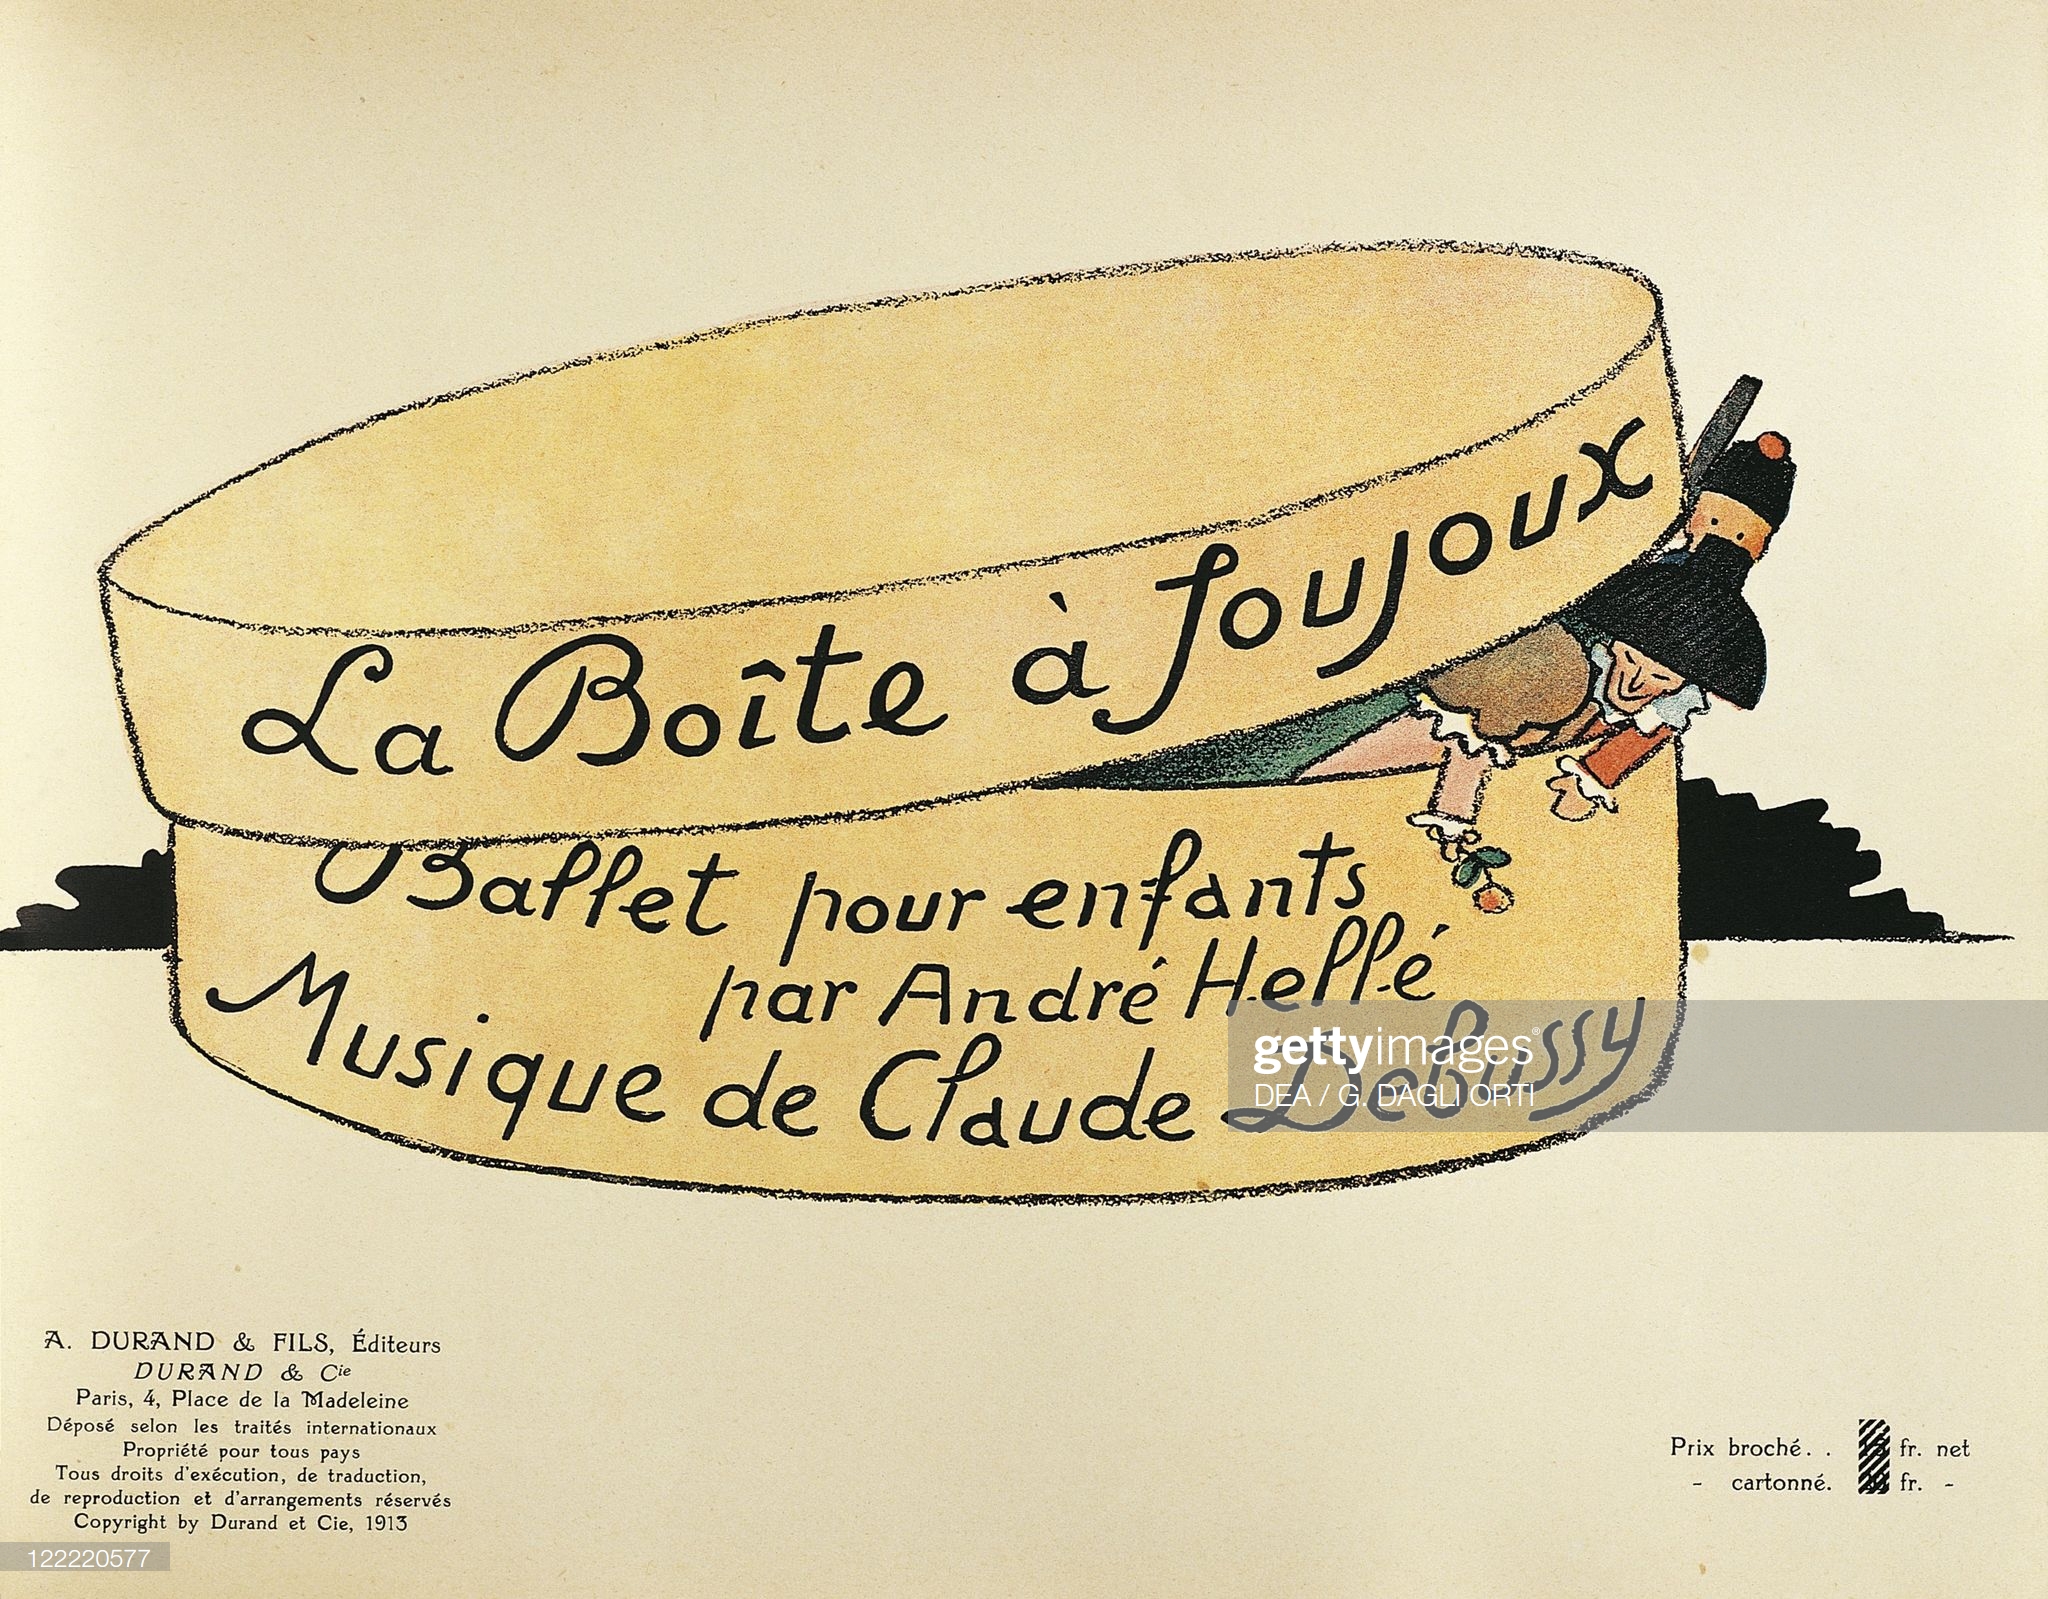 La Boîte à Joujoux
Ballet pour enfants
par André Hellé
Musique de Claude Debussy
gettyimages
DEA / G. DAGLI ORTI
A. DURAND & FILS, Éditeurs
DURAND & Cie
Paris, 4, Place de la Madeleine
Déposé selon les traités internationaux
Propriété pour tous pays
Tous droits d'exécution, de traduction,
de reproduction et d'arrangements réservés
Copyright by Durand et Cie, 1913
Prix broché. . fr. net
- cartonné. fr. -
122220577